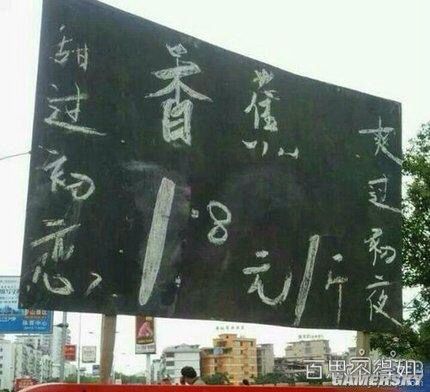 甜过初恋
香蕉
1.8元/斤
爽过初夜
GAMERSKY